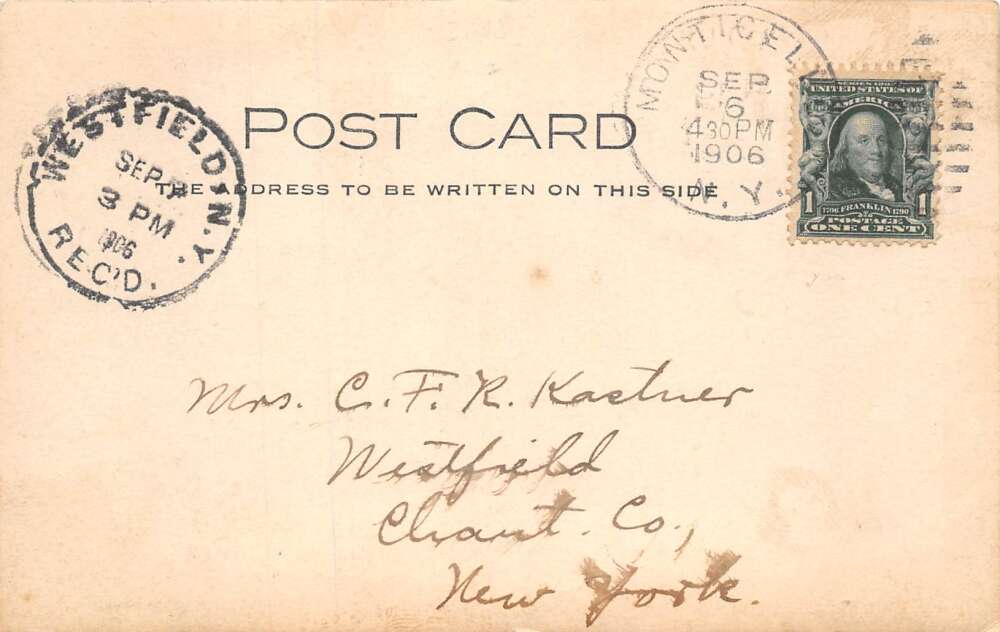 MONTICELL
SEP
6
430PM
1906
N.Y.
WESTFIELD, N.Y.
SEP 7
3 PM
1906
REC'D.
POST CARD
THE ADDRESS TO BE WRITTEN ON THIS SIDE
UNITED STATES OF
AMERICA
1 1
1706 FRANKLIN 1790
POSTAGE
ONE CENT
Mrs. C. F. R. Kastner
Westfield
Chaut. Co.,
New York.